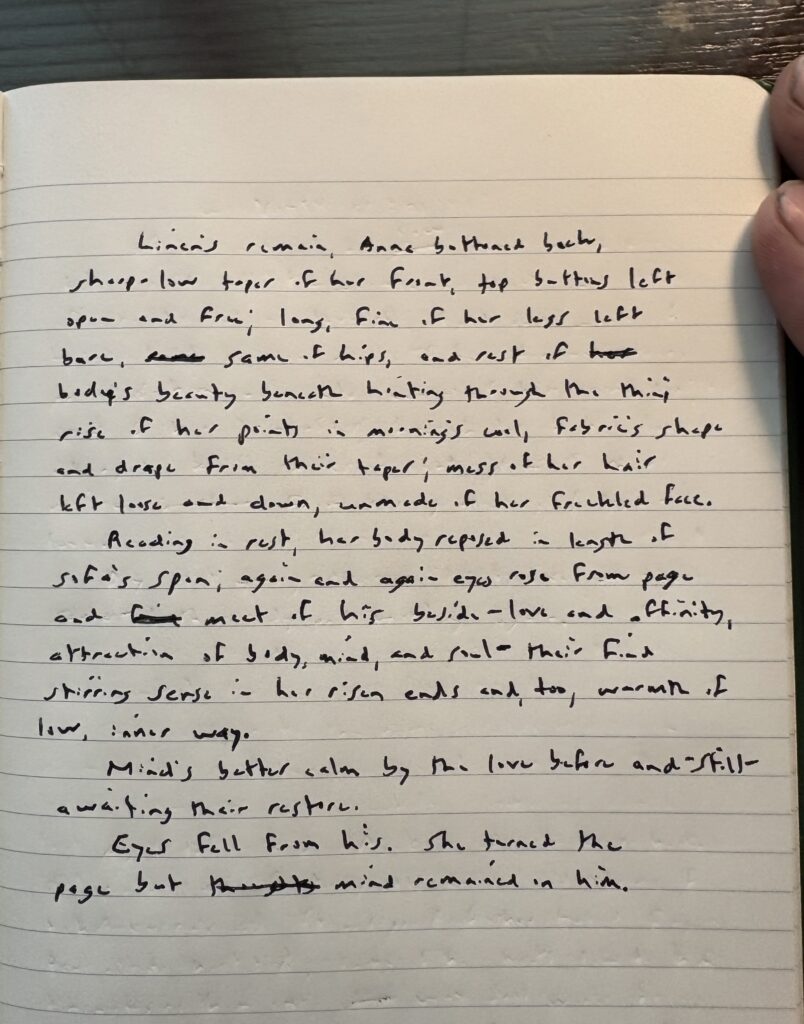 Linen's remain, Anne buttoned back,
sharp-low taper of her front, top buttons left
open and free; long, fine of her legs left
bare, same of hips, and rest of
body's beauty beneath hinting through the thin;
rise of her points in morning's cool, fabric's shape
and drape from their taper; mess of her hair
left loose and down, unmade of her freckled face.
Reading in rest, her body reposed in length of
sofa's span; again and again eyes rose from page
and meet of his beside-love and affinity,
attraction of body, mind, and soul-their find
stirring sense in her risen ends and, too, warmth of
low, inner way.
Mind's better calm by the love before and-still-
awaiting their restore.
Eyes fell from his. She turned the
page but mind remained in him.